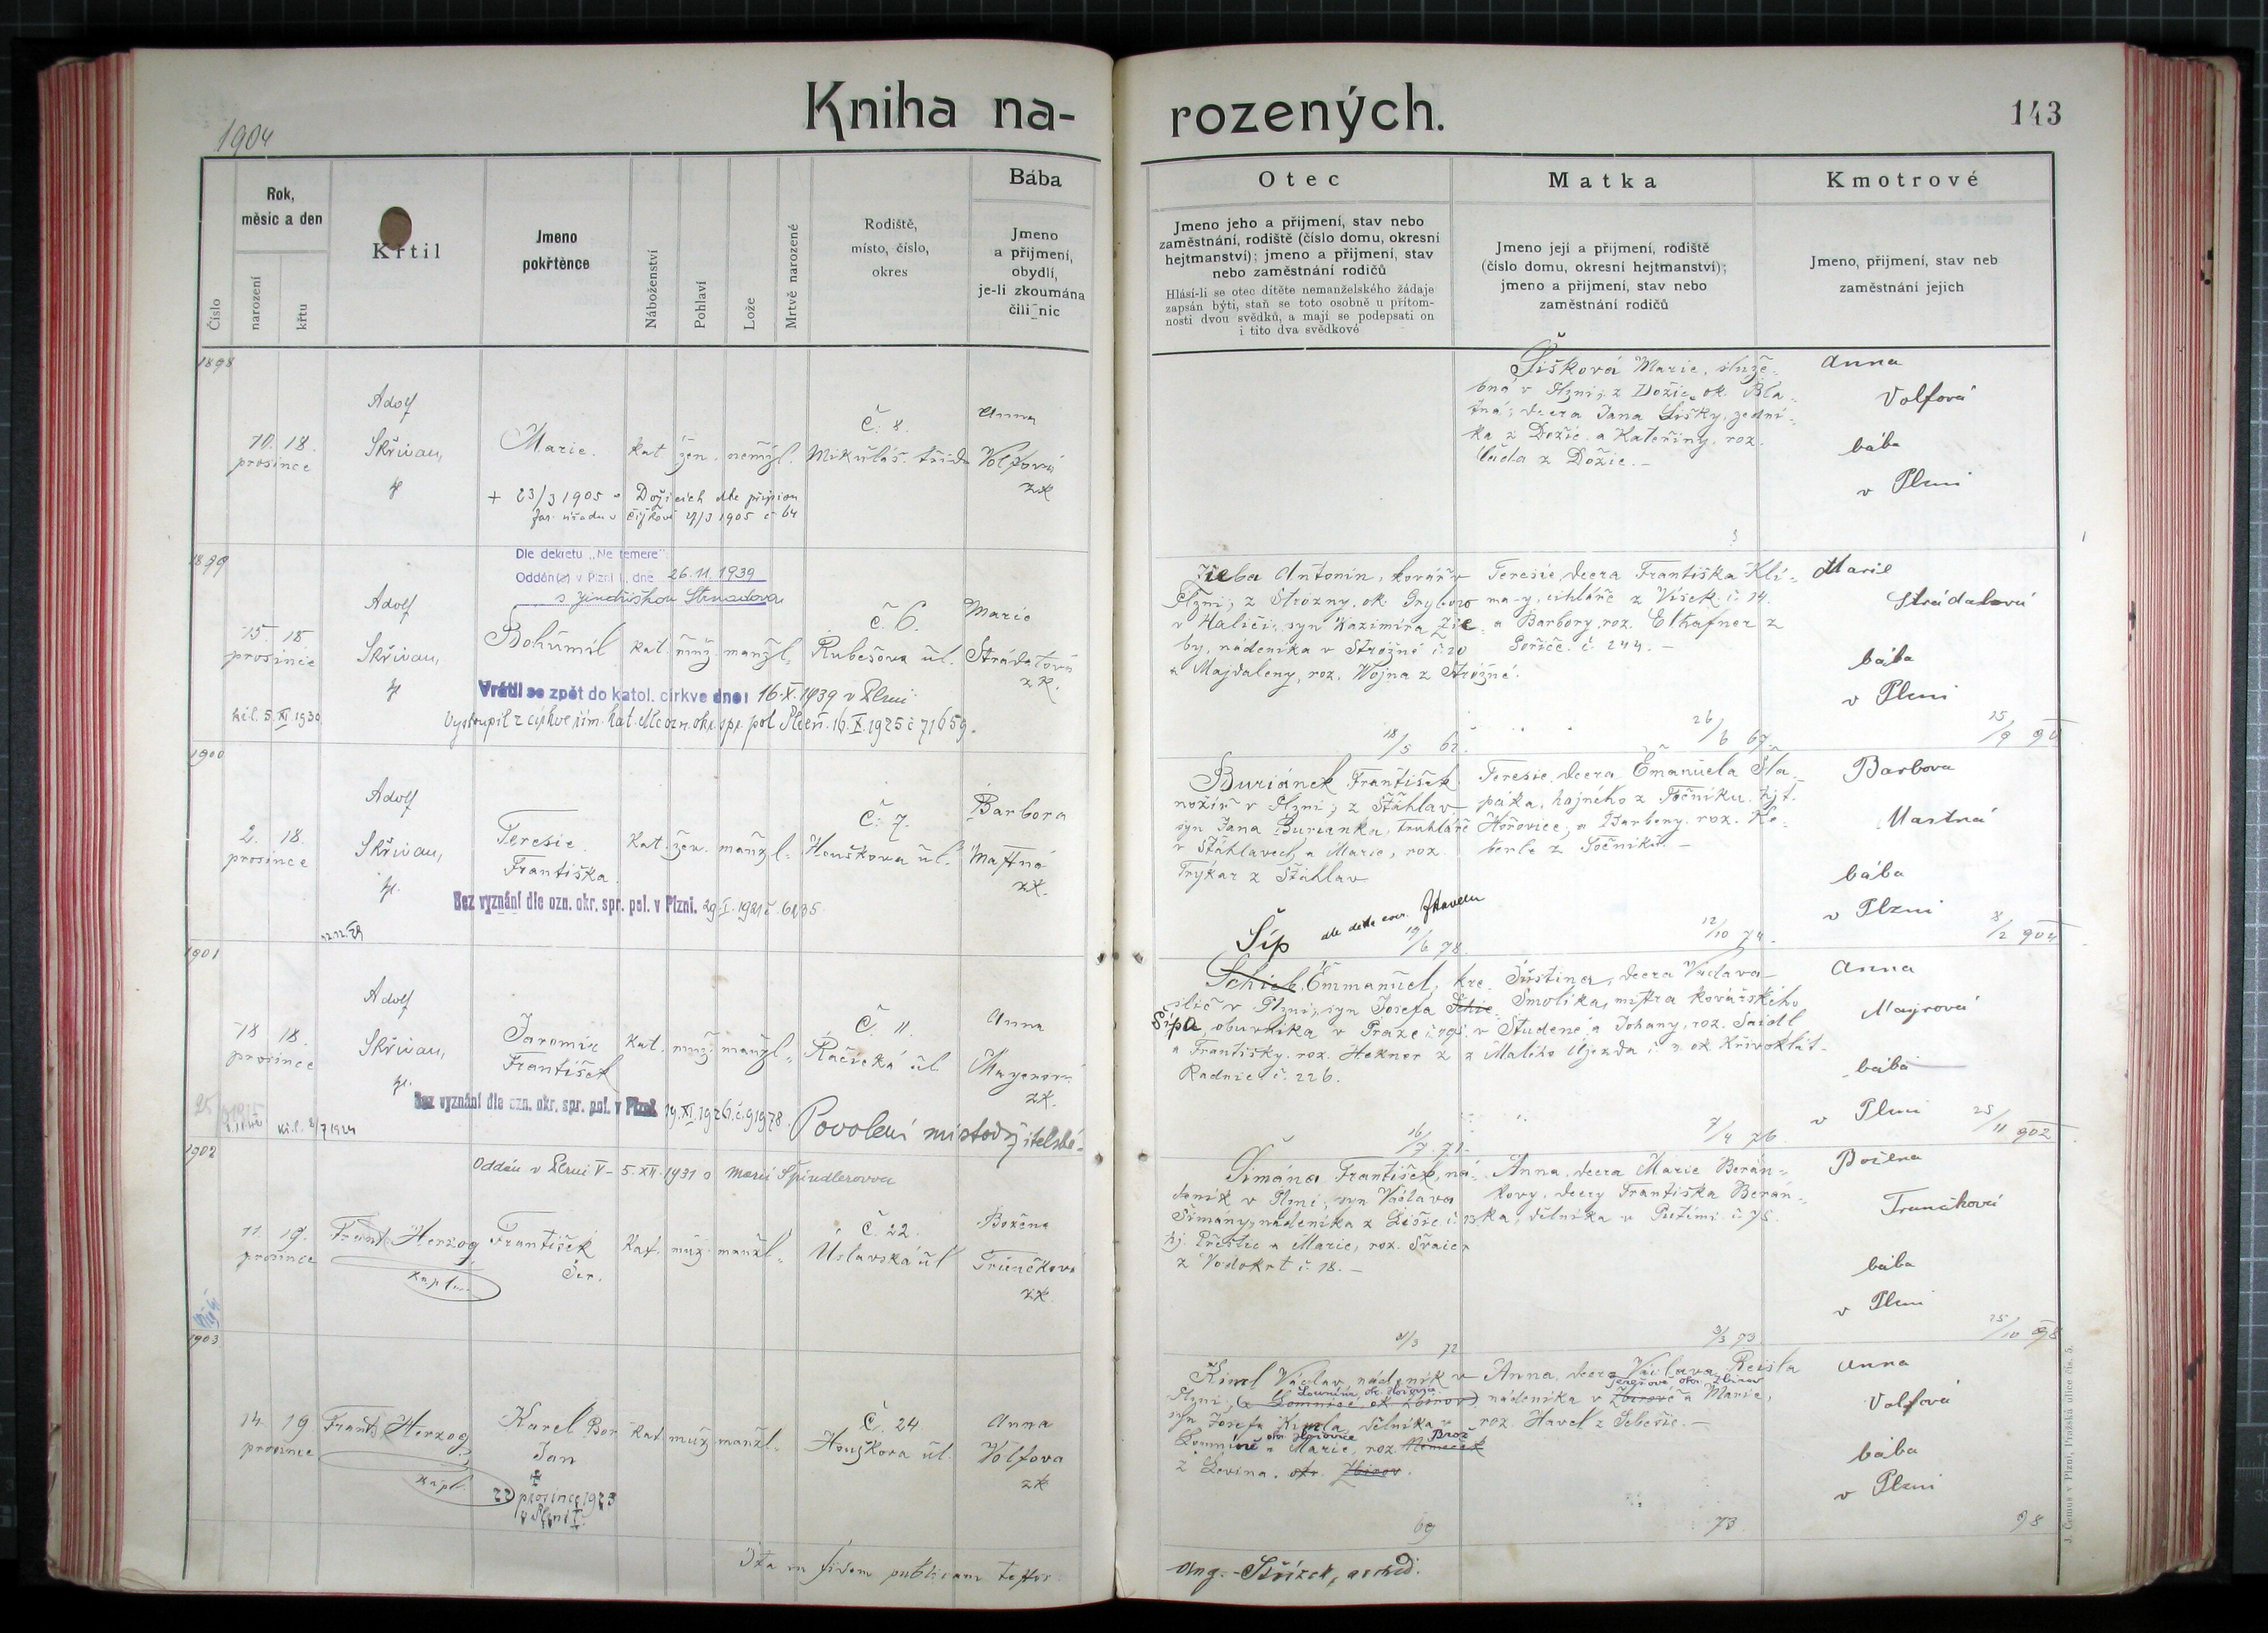 Kniha na-
rozených.
143
1904
Číslo
Rok,
měsíc a den
narození
křtu
Křtil
Jmeno
pokřtěnce
Náboženství
Pohlaví
Lože
Mrtvě narozené
Rodiště,
místo, číslo,
okres
Bába
Jmeno
a přijmení,
obydlí,
je-li zkoumána
čili nic
Otec
Jmeno jeho a přijmení, stav nebo
zaměstnání, rodiště (číslo domu, okresní
hejtmanství); jmeno a přijmení, stav
nebo zaměstnání rodičů
Hlásí-li se otec dítěte nemanželského žádaje
zapsán býti, staň se toto osobně u přítom-
nosti dvou svědků, a mají se podepsati on
i tito dva svědkové
Matka
Jmeno její a přijmení, rodiště
(číslo domu, okresní hejtmanství);
jmeno a přijmení, stav nebo
zaměstnání rodičů
Kmotrové
Jmeno, přijmení, stav neb
zaměstnání jejich
1898
10. 18.
prosince
Adolf
Skřivan,
Marie.
kat. žen. nemžl.
Č. 8.
Mikuláš. třída
Anna
Volfová
zk
+ 23/3 1905 v Dožicích dle přípisu
far. úřadu v Čížkově 4/3 1905 č. 64
Šišková Marie, služe-
bná v Plzni; z Dožic, ok. Bla-
tná; dcera Jana Šišky, zední-
ka z Dožic a Kateřiny, roz.
z Dožic.-
Anna
Volfová
bába
v Plzni
1899
Dle dekretu „Ne temere"
Oddán(a) v Plzni I., dne 26.11.1939
s Jindřiškou Strnadovou
15. 18.
prosince
Adolf
Skřivan,
Bohumil
kat. muž. manžl.
č. 6.
Rubešova ul.
Marie
Strádalová
zk.
Vrátil se zpět do katol. církve dne: 16.X.1939 v Plzni
Vystoupil z církve řím. kat. dle ozn. okr. spr. pol. Plzeň. 16.X.1925 č. 71659.
Zieba Antonín, kovář v
Plzni; z Strozny, ok. Grybow
v Haliči, syn Kazimíra Zie-
by, nádeníka v Strózné č. 20
a Majdaleny, roz. Wojna z Strózné.
18/5
Teresie, dcera Františka Kli-
my, cihláře z Vísek č. 14.
a Barbory, roz. Elhafner z
Poříčč. č. 244.-
26/6 67
Marie
Strádalová
bába
v Plzni
1900
2. 18.
prosince
Adolf
Skřivan,
Teresie
Františka.
kat. žen. manžl.
Č. 7.
Houškova ul.
Barbora
Mastná
zk.
Bez vyznání dle ozn. okr. spr. pol. v Plzni. 29.I.1921 č. 6135
Buriánek František
nožíř v Plzni; z Šťáhlav
syn Jana Burianka, truhláře
v Šťáhlavech a Marie, roz.
Trýkar z Šťáhlav
19/6 78.
Teresie, dcera Emanuela Šla-
páka, hajného z Točníku, hjt.
Hořovice, a Barbory, roz. Ke-
berle z Točníku.-
12/10 74.
Barbora
Mastná
bába
v Plzni
8/2 904
1901
18 18.
prosince
Adolf
Skřivan,
Jaromír
František
kat. muž. manžl.
Č. 11.
Račická ul.
Anna
Mayerová
zk.
Bez vyznání dle ozn. okr. spr. pol. v Plzni 19.XI.1926 č. 91978.
Povolení místodržitelské
Šíp
Schieb Emmanuel, kre-
slič v Plzni, syn Josefa Schie-
Šípa, obuvníka v Praze
a Františky, roz. Hekner z
Radnic č. 226.
16/7 71.
Justina, dcera Václava
Smolíka, mistra kovářského
v Studené a Johany, roz. Saidl
z Malého Újezda č. 3. ok. Křivoklát-
7/4 76
Anna
Mayrová
bába
v Plzni
25/11 902
1902
Oddán v Plzni V - 5.XII.1931 s Marií Špindlerovou
11. 19.
prosince
Frant. Herzog
kaplan
František
Ser.
Kat. muž. manžl.
Č. 22.
Úslavská ul.
Božena
Trunečková
zk
Šimána František, ná-
deník v Plzni, syn Václava
Šimány, nádeníka z Lišic č. 13
hj. Přeštic a Marie, roz. Švaicr
z Vodokrt č. 18.-
1/3 72
Anna, dcera Marie Berán-
kovy, dcery Františka Berán-
ka, dělníka v Putimi č. 75.
3/3 73.
Božena
Trunečková
bába
v Plzni
15/10 98
1903
14. 19
prosince
Frant. Herzog
kapl.
Karel Bor
Jan
22 prosince 1923
v Plzni I.
Kat. muž. manžl.
Č. 24
Houškova ul.
Anna
Volfova
zk
Kincl Václav, nádeník v
Plzni, (z Lomnice, ok. Zbirov)
syn Josefa Kincla, dělníka v
a Marie, roz. Nemeček Brož
z Levina. okr. Zbirov.
69
Anna, dcera Václava Reisla
nádeníka v Zbirově a Marie,
roz. Havel z Sebečic.-
73
Anna
Volfová
bába
v Plzni
98
Ita in fidem publicam testor
Aug. Skřízek, archid.
J. Černus v Plzni, Pražská ulice čís. 5.